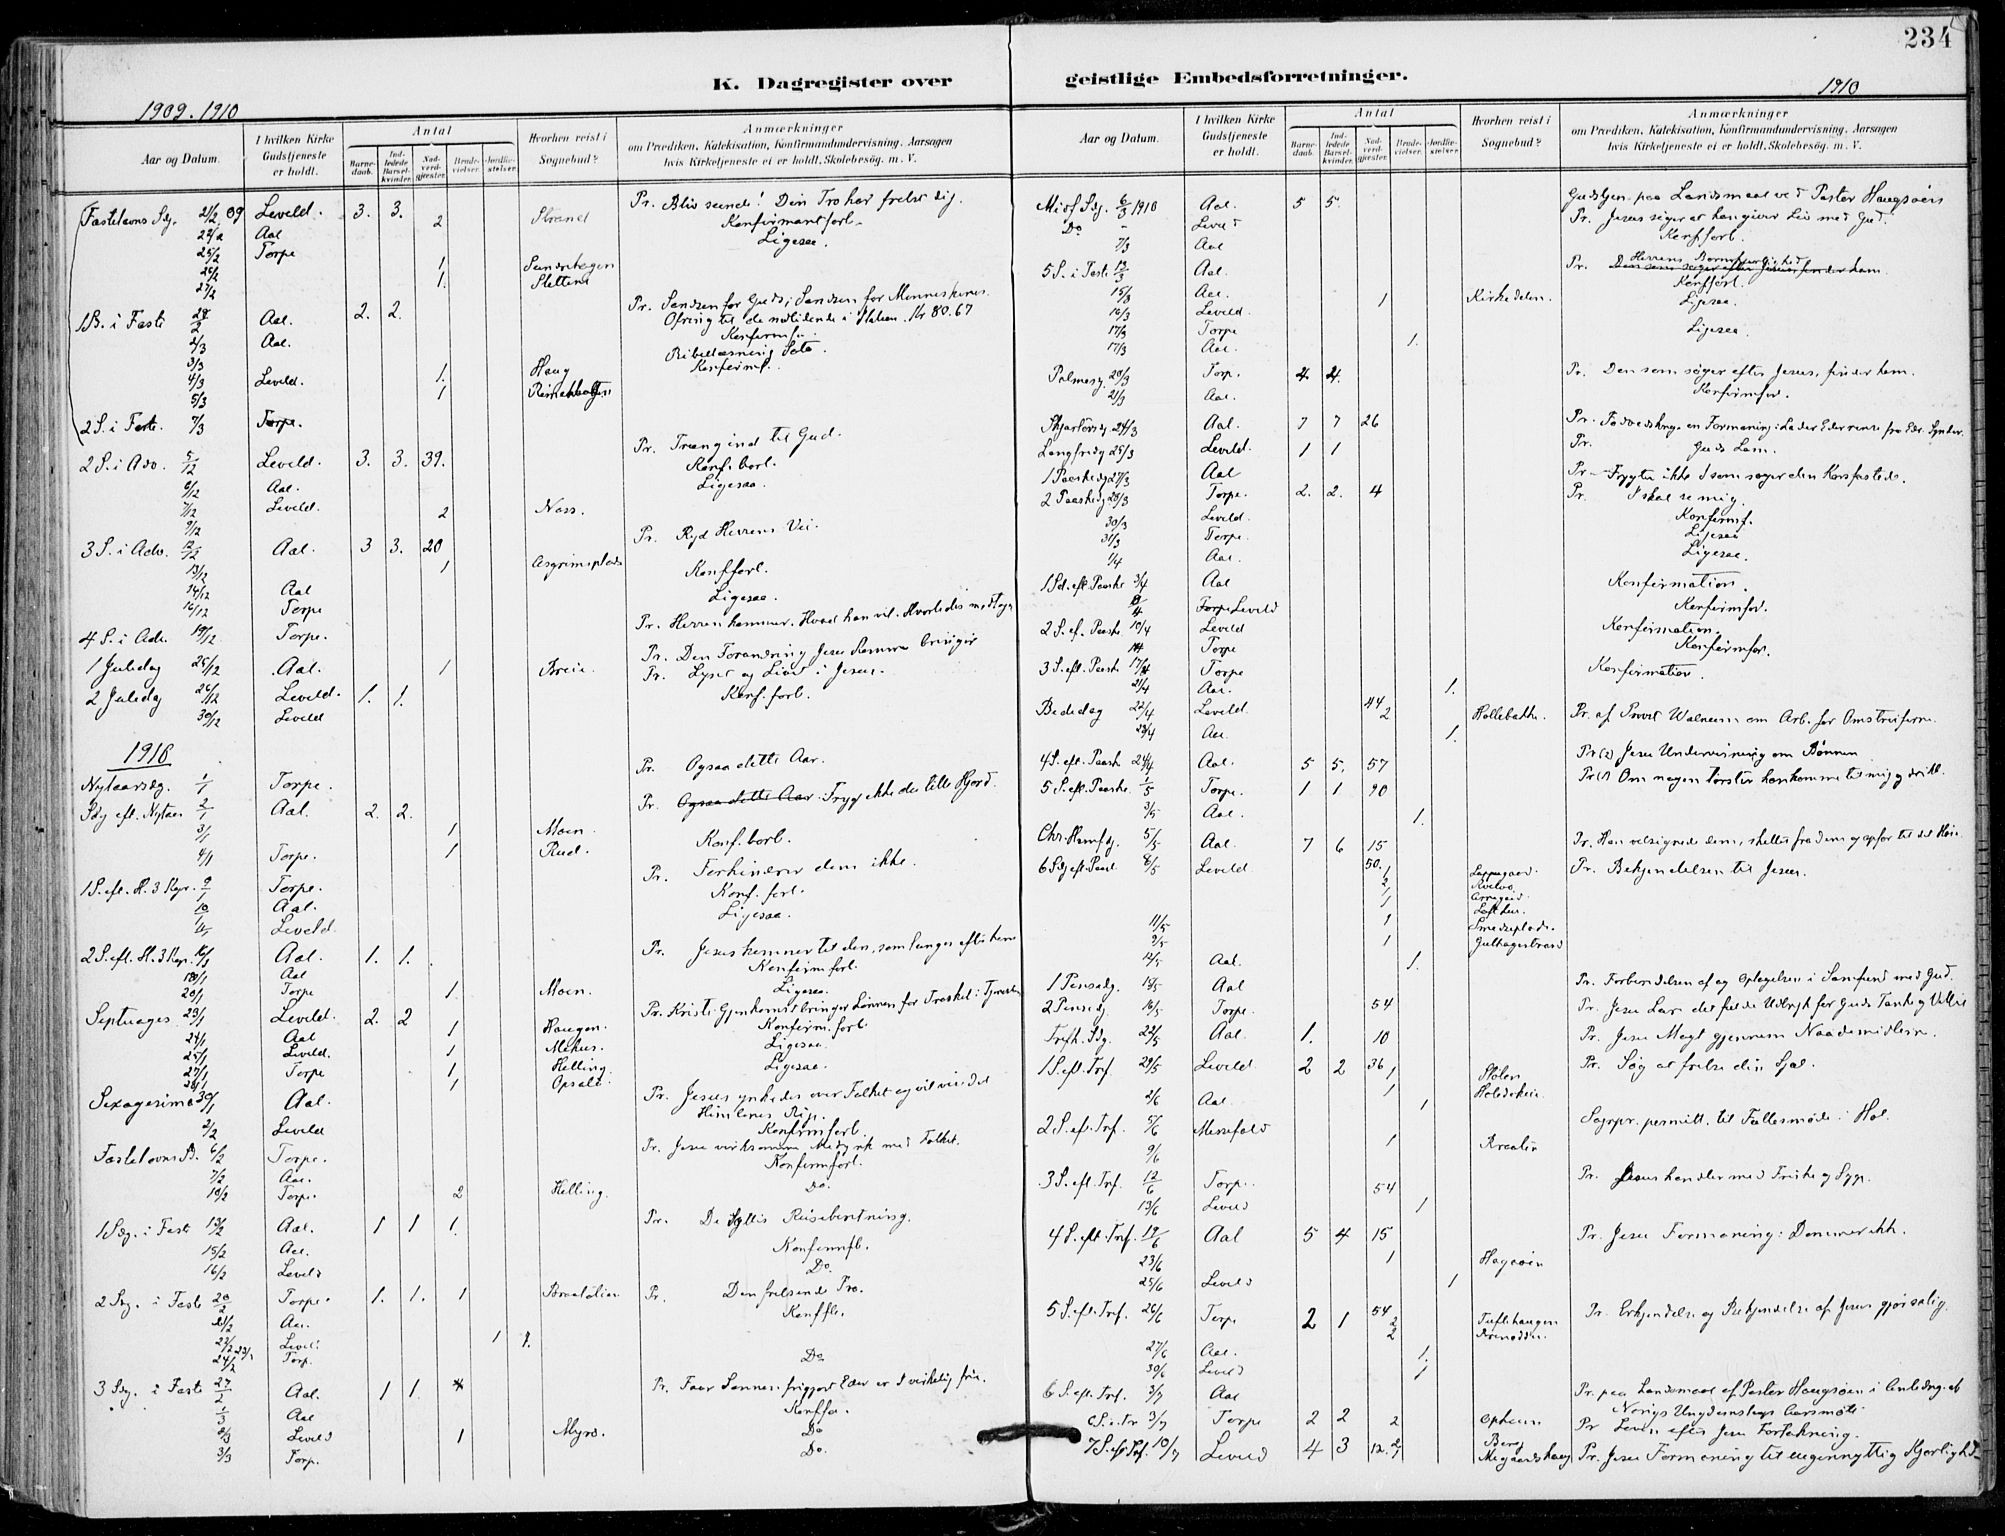 234
K. Dagregister over geistlige Embedsforretninger.
1909. 1910
1910
Aar og Datum.
I hvilken Kirke Gudstjeneste er holdt.
Antal
Barnedaab.
Indledede Barselkvinder.
Nadverdgjæster.
Brudevielser.
Jordfæstelser.
Hvorhen reist i Sognebud?
Anmærkninger
om Prædiken, Katekisation, Konfirmandundervisning. Aarsagen
hvis Kirketjeneste ei er holdt. Skolebesøg. m. V.
Fastelavns Sdg. 21/2 09 Leveld. 3. 3. Pr. Bliv seende! Din Tro har frelst dig.
2 Strand Konfirmantforb.
22/2 Aal Ligesaa.
25/2 Torpe
26/2 1. Sundrehagen
27/2 1. Slettene
1 S. i Faste 28/2 Aal. 2. 2. Pr. Sendsen for Guds, Sandsen for Menneskenes.
Ofring til de nødlidende i Italien. Kr 80.67
2/3 Aal. Konfirmf.
3/3 1. Haug Bibellæsning Sato.
4/3 Leveld. 1 Konfirmf.
5/3
2 S. i Faste. 7/3 Torpe.
2 S. i Adv. 5/12 Leveld. 3. 3. 39. Pr. Træng ind til Gud.
6/12 Aal. Konf. forb.
7/12 Leveld. Ligesaa.
9/12 2 Noss.
3 S. i Adv. 12/12 Aal. 3 3. 20 Pr. Ryd Herrens Vei.
13/12 1 Asgrimsplads
14/12 Aal Konfforb.
16/12 Torpe Ligesaa.
4 S. i Adv. 19/12 Torpe. Pr. Herren kommer. Hvad han vil. Hvorledes modtages
1 Juledag 25/12 Aal. 1 Breie. Pr. Den Forandring Jesu Komme bringer
2 Juledag 26/12 Leveld. 1. 1. Pr. Lyset og Livet i Jesus.
30/12 Leveld Konf. forb.
1910
Nytaarsdg. 1/1 Torpe. Pr. Ogsaa dette Aar.
Sdg eft. Nytaar 2/1 Aal. 2. 2. Pr. Ogsaa dette Aar. Frygt ikke du lille Hjord.
3/1 1 Moen.
4/1 Torpe. 1 Rud. Konf. forb.
1 S. eft. H. 3 Kgr. 9/1 Torpe. Pr. Forhindrer dem ikke.
10/1 Aal. Konf. forb
11/1 Leveld. Ligesaa.
2 S. eft. H. 3 Kgr. 16/1 Aal. 1. 1. Pr. Jesus kommer til den, som længes efter ham
18/1 Aal Konfirmforb.
20/1 Torpe 1. Moen. Ligesaa.
Septuages 23/1 Leveld. 2. 2 Pr. Kristi Gjenkomst bringer Lønnen for Troskab i Tjenesten
24/1 Aal 1 Haugen. Konfirm. forb.
25/1 Leveld. 1 Mehus. Ligesaa.
27/1 Torpe 1 Helling. Ligesaa.
1 Opsale.
Sexagesima 30/1 Aal. Pr. Jesus ynkedes over Folket og vil vinde det
Himlenes Rige.
2/2 Leveld Konfirmforb.
Fastelavns S. 6/2 Torpe. Pr. Jesu virksomme Medynk med Folket.
7/2 Aal. Konfirmforb.
10/2 Torpe. 2 Helling. Do.
1 Sdg. i Faste 13/2 Aal. 1 1 1. Pr. De Syttis Reiseberetning.
15/2 Aal. Konfirmfb.
16/2 Leveld Do.
2 Sdg. i Faste 20/2 Torpe. 1. 1. 1 Braatalien Pr. Den frelsende Tro.
21/2 Aal. Konffb.
22/2 23/2 Level: 1 1.
24/2 Torp. Do
3 Sdg. i Faste 27/2 Aal. 1 1. Pr. Faar Sønnen frigjort Eder er I virkelig frie.
1/3 Aal Konffo.
2/3 Leveld 1 Myro. Do
3/3 Torp. Do.
Aar og Datum.
I hvilken Kirke Gudstjeneste er holdt.
Antal
Barnedaab.
Indledede Barselkvinder.
Nadverdgjæster.
Brudevielser.
Jordfæstelser.
Hvorhen reist i Sognebud?
Anmærkninger
om Prædiken, Katekisation, Konfirmandundervisning. Aarsagen
hvis Kirketjeneste ei er holdt. Skolebesøg. m. V.
Midf. Sdg. 6/3 1910 Aal. 5 5. Gudstjen. paa Landsmaal ved Pastor Haugsøen
Do - Leveld Pr. Jesus siger at han giver Liv med Gud.
7/3 Aal Konfforb.
5 S. i Faste 13/3 Aal. Pr. Den som søger efter Jesus finder ham. Herrens Barmhjertighed
15/3 Aal. 1 Kirkedelen. Konfforb.
16/3 Leveld. Ligesaa.
17/3 Torpe Ligesaa
17/3 Aal. 1.
Palmesg. 20/3 Torp. 4 4. Pr. Den som søger efter Jesus, finder ham.
21/3 Aal. Konfirmfor.
Skjærtorsdg 24/3 Aal. 7 7 26 Pr. Fodvaskningen en Formaning: Lader Eder rense fra Eders Synder.
Langfredg 25/3 Leveld. 1 1 Pr. Guds Lam.
1 Paaskedg 27/3 Aal Pr. Frygter ikke I som søger den Korsfæstede.
2 Paaskedg 28/3 Torpe. 2. 2. 4 Pr. I skal se mig
30/3 Leveld. Konfirmf.
31/3 Torpe. Ligesaa
1/4 Aal. Ligesaa.
1 Sd. eft. Paaske 3/4 Aal Konfirmation.
8/4 Torpe Leveld Konfirmfor.
2 S. ef. Paaske. 10/4 Leveld Konfirmation.
14 Torpe Konfirmfor.
3 S. eft. Paaske 17/4 Torpe Konfirmation.
21/4 Aal. 1.
Bededag 22/4 Leveld. 44 2 Hollebakke. Pr. af Provst Walnum om Arb. for Omstreiferne.
23/4 Aal. 1.
4 S. eft. Paaske 24/4 Aal. 5 5. 57 Pr (2) Jesu Undervisning om Bønnen
5 S. eft. Paaske. 1/5 Torpe. 1 1 90 Pr (1) Om nogen tørster han komme til mig og drikke.
3/5 Aal. 1.
Chr. Himlf dg. 5/5 Aal. 7 6 15 Pr. Han velsignede dem, skiltes fra dem og opfor til det Høie.
6 Sdg eft. Paask 8/5 Leveld 50. 1 Leppegaard. Pr. Bekjendelsen til Jesus.
2 Kvelvo
1 Arnegard.
1 Lofthus.
11/5 1 Smedsplads.
9/5 1 Gulhagestrand
12/5 Aal. 1.
1 Pinsedg. 15/5 Aal Pr. Forbindelsen af og Optagelsen i Samfund med Gud.
2 Pinsedg. 16/5 Torpe. 54 Pr. Jesu Lære det fulde Udtryk for Guds Tanke og Vilje
Trefh. Sdg. 22/5 Aal. 1. 10 Pr. Jesu Magt gjennem Naademidlerne.
1 S. eft. Tref 29/5 Leveld 2 2 36 1 Stølen Pr. Søg at frelse din Sjæl.
2/6 Aal. 1 1
2 S. eft. Tref. 5/6 Messefald Sogepr. permitt. til Fællesmøde i Hol.
9/6 1
3 S. eft. Tref. 12/6 Torpe. 54 Pr. Jesus handler med Friske og Syge.
13/6 Leveld 1
4 S. eft. Tref. 19/6 Aal 5 4 15 Pr. Jesu Formaning: Dømmer ikke.
23/6 1 Hagaoien
25/6 Leveld 1
5 S. eft. Tref. 26/6 Torpe 2 1 54 2 Tuftehaugen Pr. Erkjendelse og Bekjendelse af Jesus gjør salig.
2
27/6 Aal. 1.
30/6 Leveld 1
6 S. eft. Tref. 3/7 Aal Pr. paa Landsmaal af Pastor Haugsøen i Anledng. af
Norigs Ungdomslags Aarsmøte
6 S. e. Tr 3/7 Torpe 2 2 2 Opheim Pr Leven efter Jesu Forsikring.
7 S. eft. Tref. 10/7 Leveld 4 3 12. 2 Berg
Pr. Jesu Formaning til uegennyttig Kjærlighed